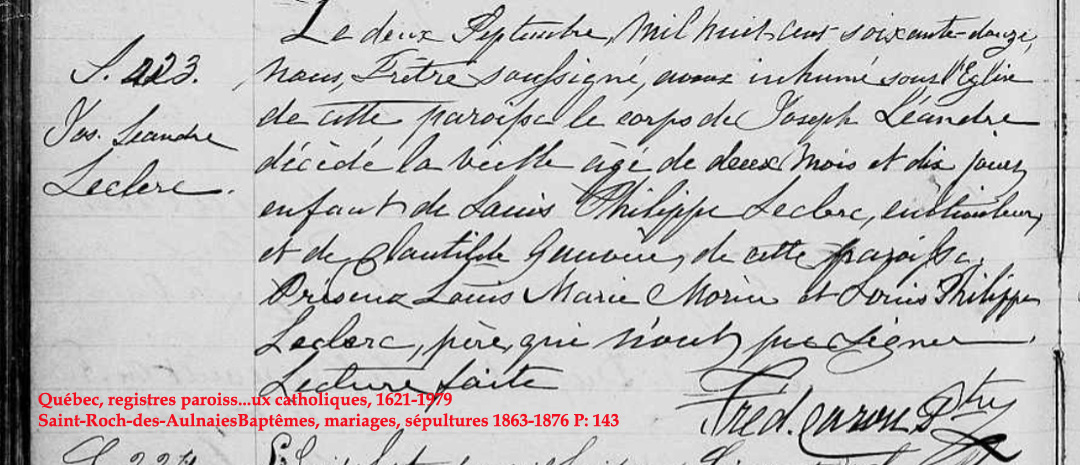 Le deux Septembre, mil huit cent soixante-douze,
S. 223.
nous, Prêtre soussigné, avons inhumé sous l'Eglise
de cette paroisse le corps de Joseph Léandre
Jos. Leandre
décédé la veille âgé de deux mois et dix jours,
Leclerc.
enfant de Louis Philippe Leclerc,
et de Clautilde de cette paroisse.
Présents Louis Marie Morin et Louis Philippe
Leclerc, père, qui n'ont pu signer.
Lecture faite
Fréd. Caron Ptre
Québec, registres paroiss...ux catholiques, 1621-1979
Saint-Roch-des-AulnaiesBaptêmes, mariages, sépultures 1863-1876 P: 143